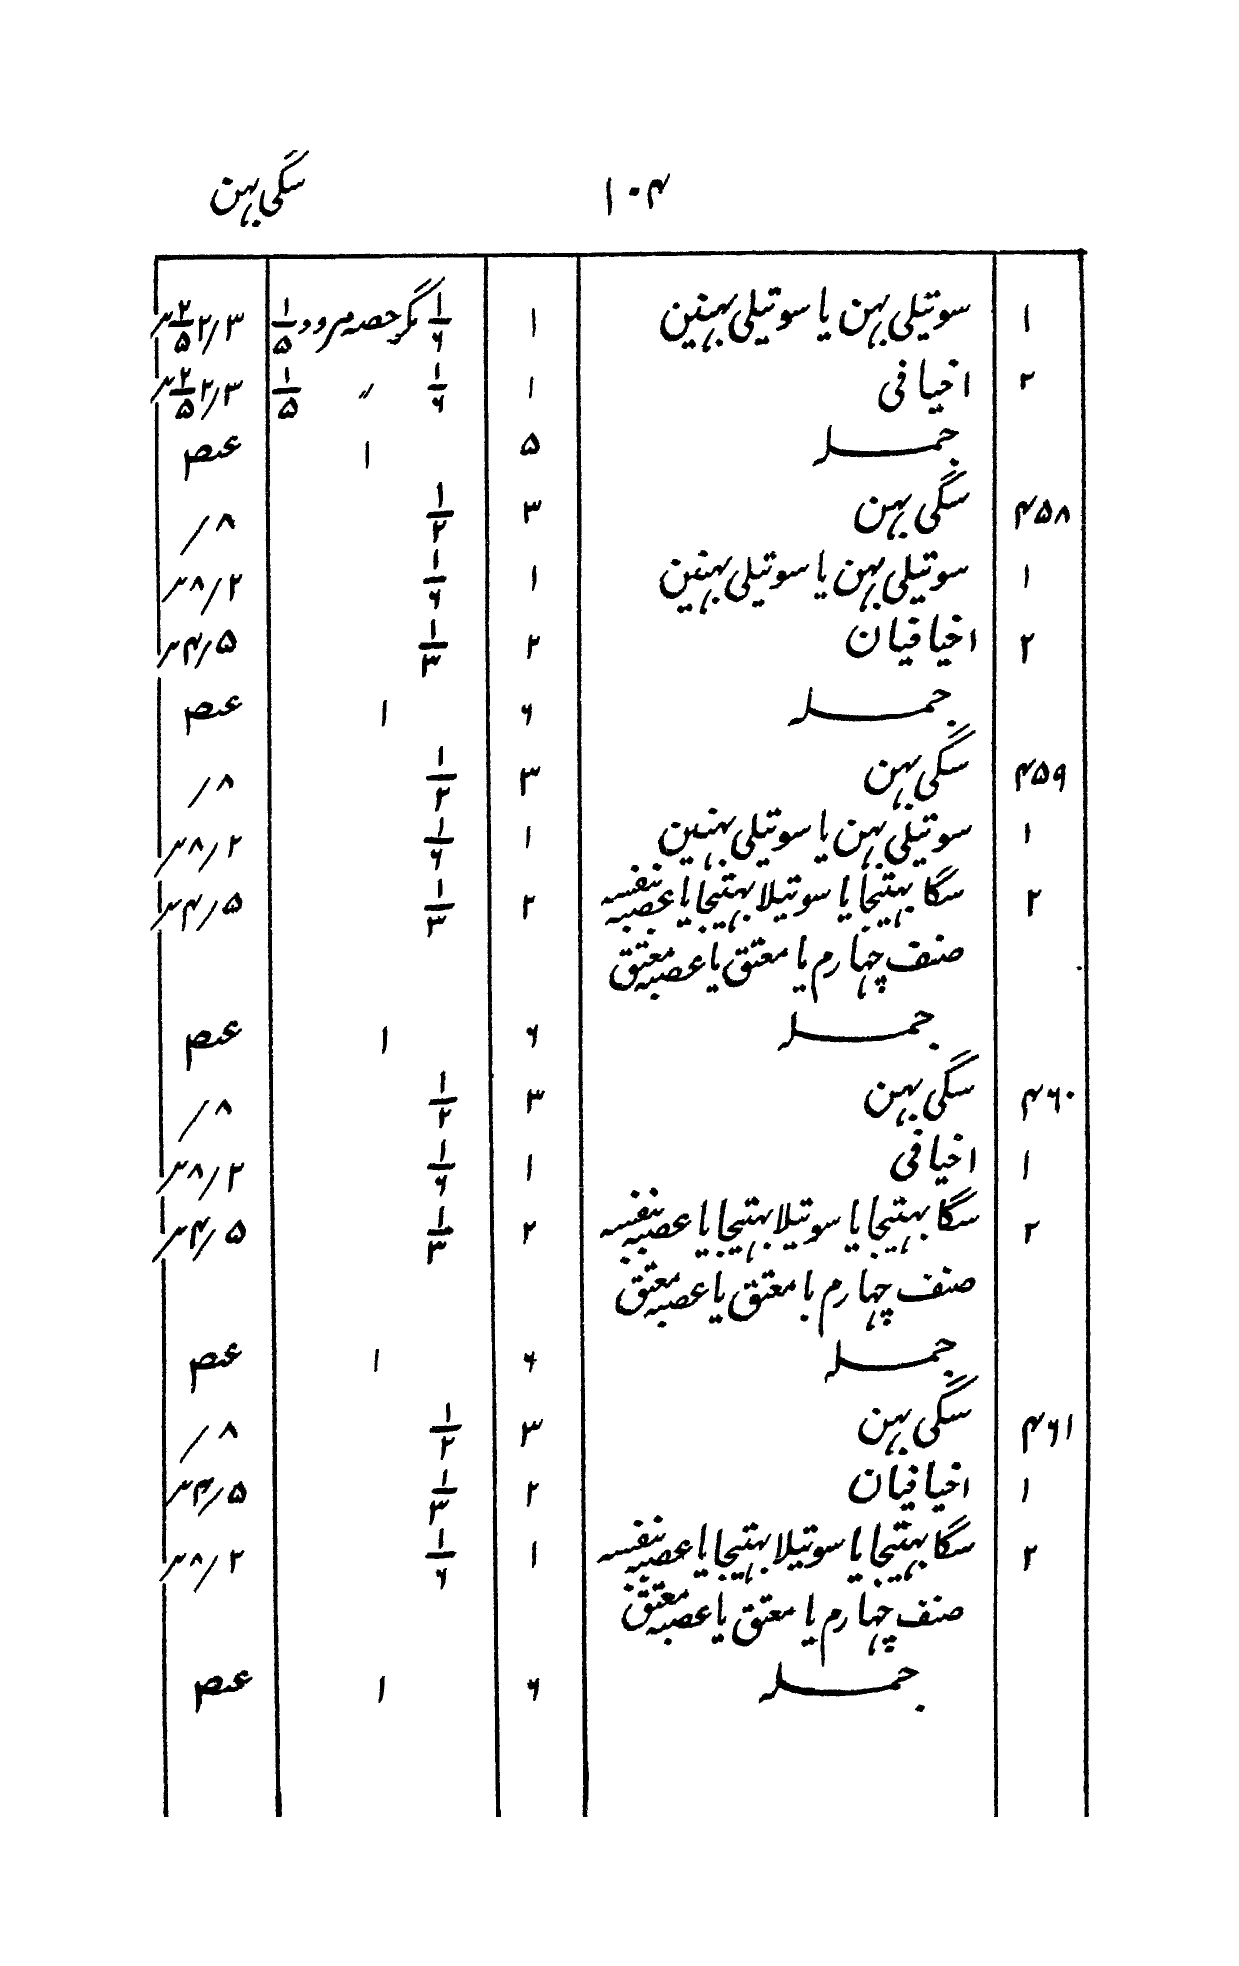 ۱۰۴ سگی بہن
۱ سوتیلی بہن یا سوتیلی بہنین ۱ ۱/۶ مگر حصہ مرود ۱/۵
۲ اخیافی ۱ ۱/۶ 〃 ۱/۵
جملہ ۵ ۱ عصہ
۴۵۸ سگی بہن ۳ ۱/۲ ۸/
۱ سوتیلی بہن یا سوتیلی بہنین ۱ ۱/۶ ۲/۸
۲ اخیافیان ۲ ۱/۳ ۵/۴
جملہ ۶ ۱ عصہ
۴۵۹ سگی بہن ۳ ۱/۲ ۸/
۱ سوتیلی بہن یا سوتیلی بہنین ۱ ۱/۶ ۲/۸
۲ سگا بہتیجا یا سوتیلا بہتیجا یا عصبہ بنفسہ ۲ ۱/۳ ۵/۴
صنف چہارم یا معتق یا عصبہ معتق
جملہ ۶ ۱ عصہ
۴۶۰ سگی بہن ۳ ۱/۲ ۸/
۱ اخیافی ۱ ۱/۶ ۲/۸
۲ سگا بہتیجا یا سوتیلا بہتیجا یا عصبہ بنفسہ ۲ ۱/۳ ۵/۴
صنف چہارم یا معتق یا عصبہ معتق
جملہ ۶ ۱ عصہ
۴۶۱ سگی بہن ۳ ۱/۲ ۸/
۱ اخیافیان ۲ ۱/۳ ۵/۴
۲ سگا بہتیجا یا سوتیلا بہتیجا یا عصبہ بنفسہ ۱ ۱/۶ ۲/۸
صنف چہارم یا معتق یا عصبہ معتق
جملہ ۶ ۱ عصہ